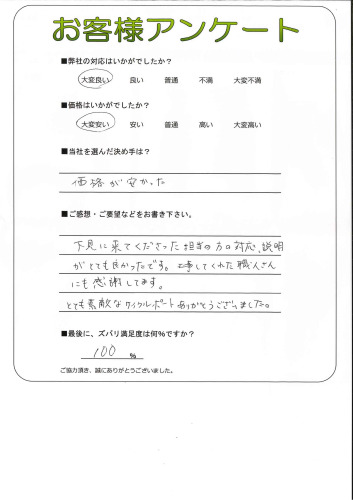 お客様アンケート
■弊社の対応はいかがでしたか?
大変良い 良い 普通 不満 大変不満
■価格はいかがでしたか?
大変安い 安い 普通 高い 大変高い
■当社を選んだ決め手は?
価格が安かった
■ご感想・ご要望などをお書き下さい。
下見に来てくださった担当の方の対応、説明
がとても良かったです。工事してくれた職人さん
にも感謝してます。
とても素敵なサイクルポートありがとうございました。
■最後に、ズバリ満足度は何%ですか?
100 %
ご協力頂き、誠にありがとうございました。